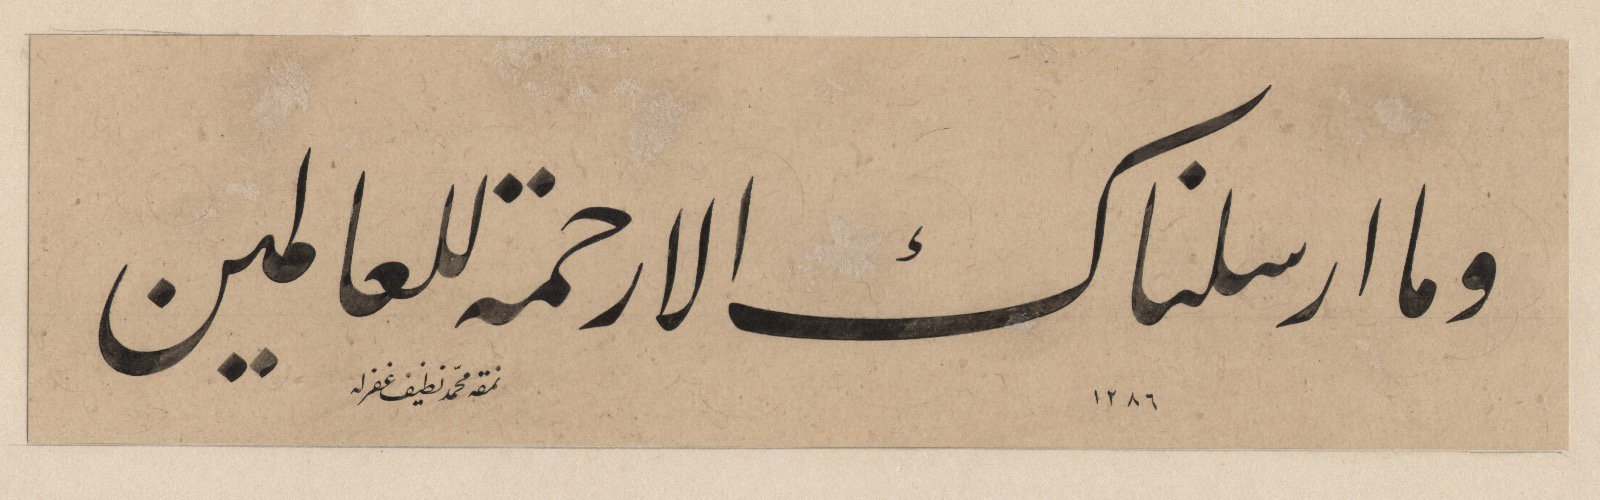 وما ارسلناك الا رحمة للعالمين
نمقه محمد نظيف غفر له
١٢٨٦